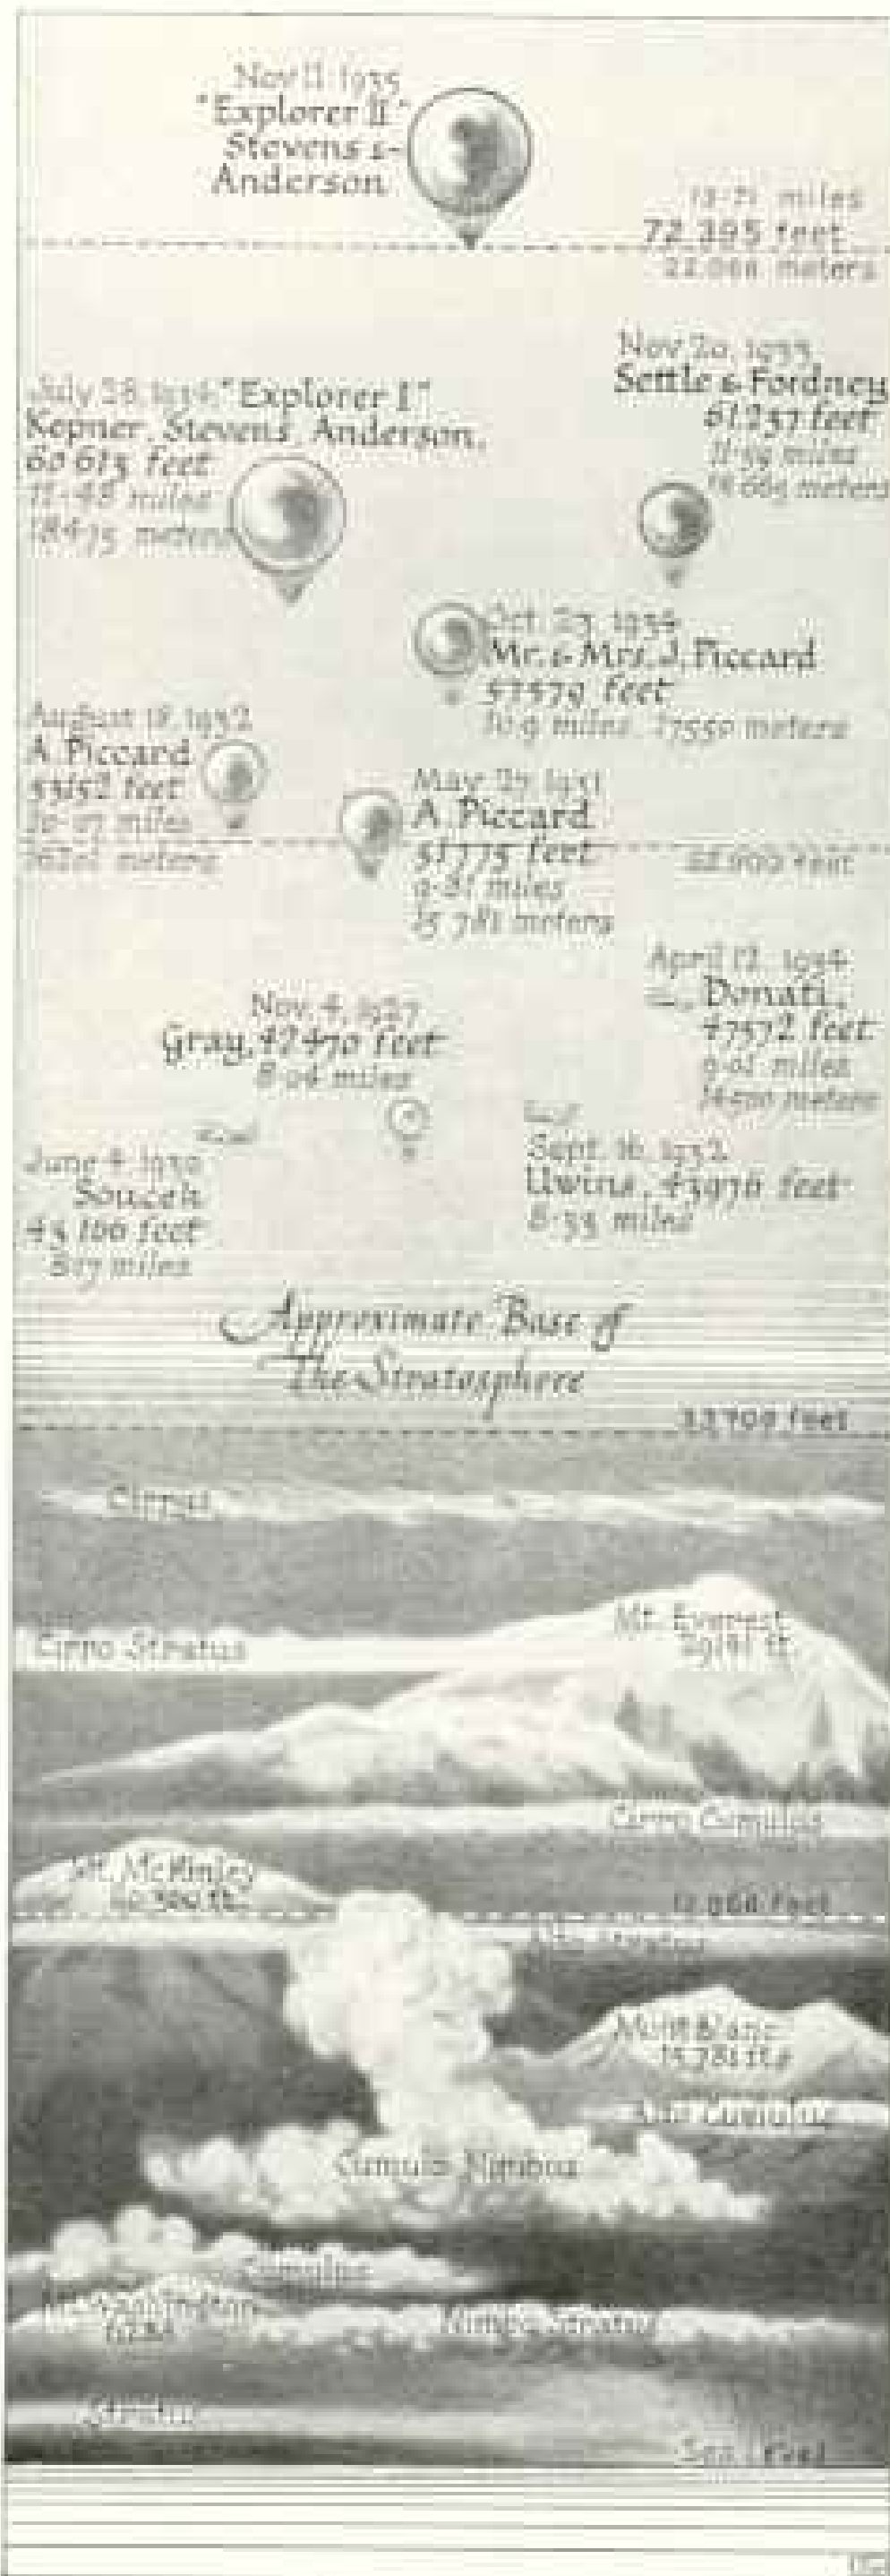 Nov 11 1935
"Explorer II"
Stevens &
Anderson
13.71 miles
72 395 feet
22 066 meters
Nov 20, 1933
Settle & Fordney
61237 feet
11.59 miles
18 665 meters
July 28, 1934, "Explorer I"
Kepner, Stevens, Anderson,
60 613 feet
11.48 miles
18475 meters
Oct. 23, 1934
Mr. & Mrs. J. Piccard
57579 feet
10.9 miles, 17550 meters
August 18, 1932
A. Piccard
53152 feet
10.07 miles
16201 meters
May 27 1931
A. Piccard
51775 feet
9.81 miles
15 781 meters
feet
April 12, 1934
Donati,
47572 feet
9.01 miles
14500 meters
Nov. 4, 1927
Gray, 42470 feet
8.04 miles
June 4, 1930
Soucek
43 166 feet
8.17 miles
Sept. 16, 1932
Uwins, 43976 feet
8.33 miles
Approximate Base of
The Stratosphere
feet
Cirrus
Mt. Everest
29141 ft.
Cirro Stratus
Cirro Cumulus
Mt. McKinley
ft.
feet
Alto Stratus
Mont Blanc
15,781 ft.
Alto Cumulus
Cumulo Nimbus
Cumulus
Mt. Washington
Nimbo Stratus
Stratus
Sea Level